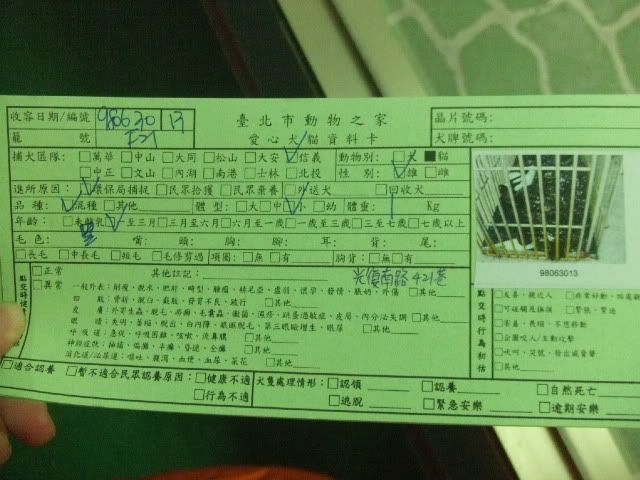 收容日期/編號 980630 13 臺北市動物之家 晶片號碼:
籠 號 F21 愛心犬貓資料卡 犬牌號碼:
捕犬區隊: □萬華 □中山 □大同 □松山 □大安 ☑信義 動物別: □犬 ■貓
□中正 □文山 □內湖 □南港 □士林 □北投 性 別: ☑雄 □雌
進所原因: ☑環保局捕捉 □民眾拾獲 □民眾棄養 □外送犬 □回收犬
品 種: ☑混種 □其他 體 型: □大 □中 ☑小 □幼 體重: 1 Kg
年齡: □未離乳 ☑至三月 □三月至六月 □六月至一歲 □一歲至三歲 □三至七歲 □七歲以上
毛 色: 黑 嘴: 頭: 胸: 腳: 耳: 背: 尾:
□長毛 □中長毛 □短毛 □毛修剪過 項圈: □無 □有 胸背: □無 □有
98063013
□正常 其他註記: 光復南路421巷
□異常
一般外表: 削瘦、脫水、肥胖、畸型、腫瘤、赫尼亞、虛弱、懷孕、發情、脹奶、外傷 □其他
四 肢: 骨折、脫臼、截肢、發育不良、跛行 □其他
皮 膚: 外寄生蟲、脫毛、疥癬、毛囊蟲、黴菌、濕疹、跳蚤過敏症、皮屑、內分泌失調 □其他
眼 睛: 失明、萎縮、脫出、白內障、眼瞼脫毛、第三眼瞼增生、眼屎 □其他
呼 吸 道: 急促、呼吸困難、咳嗽、流鼻膿 □其他
神經症狀: 抽搐、偏癱、半癱、昏迷、全癱 □其他
消化道/泌尿道: 嘔吐、腹瀉、血便、血尿、菜花 □其他
點交時行為初估
□友善、親近人 □非常好動、四處
□可碰觸且撫摸 □緊張、緊迫
□害羞、畏縮、不想移動
□企圖咬人/主動攻擊
□吠叫、哭號、發出威脅聲
□其他
□適合認養 □暫不適合民眾認養原因: □健康不適 犬隻處理情形: □認領 □認養 □自然死亡
□行為不適 □逃脫 □緊急安樂 □逾期安樂